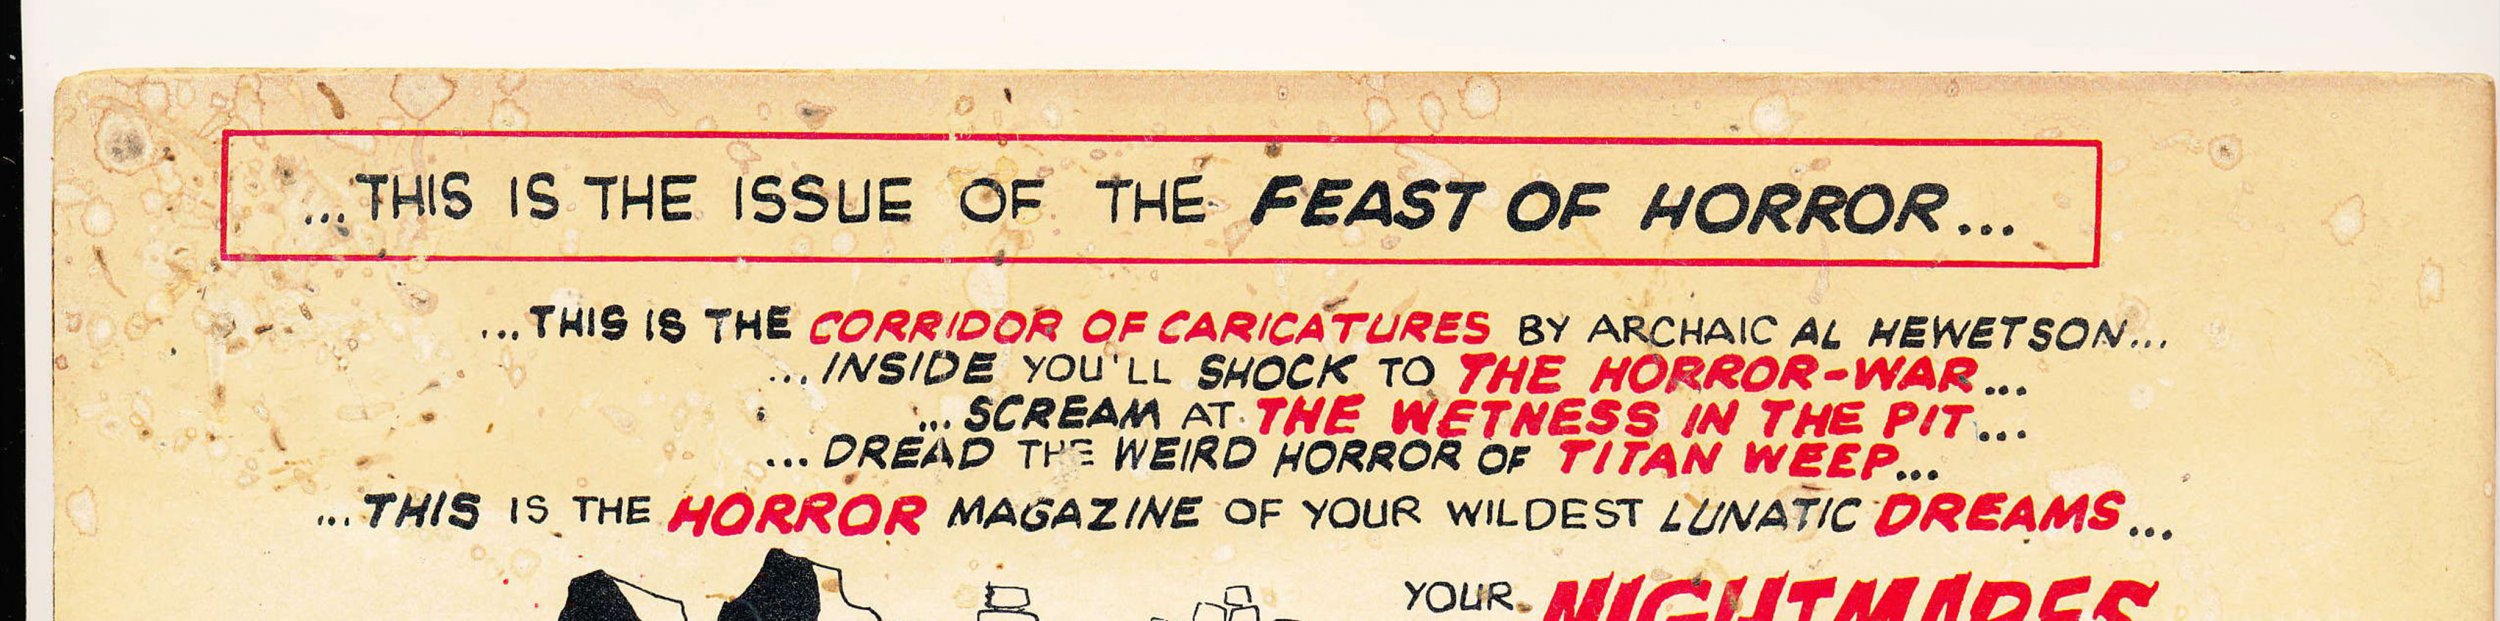 ...THIS IS THE ISSUE OF THE FEAST OF HORROR...
...THIS IS THE CORRIDOR OF CARICATURES BY ARCHAIC AL HEWETSON...
...INSIDE YOU'LL SHOCK TO THE HORROR-WAR...
...SCREAM AT THE WETNESS IN THE PIT...
...DREAD THE WEIRD HORROR OF TITAN WEEP...
...THIS IS THE HORROR MAGAZINE OF YOUR WILDEST LUNATIC DREAMS...
YOUR NIGHTMARES